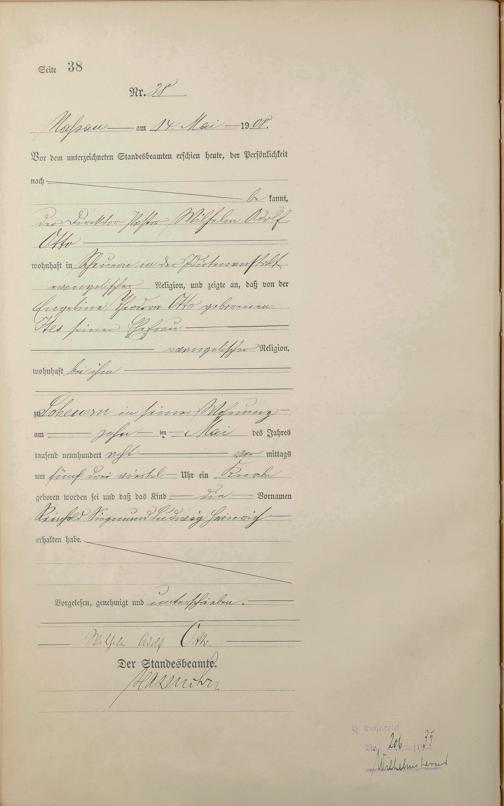 Seite 38
Nr. 28
Nassau am 14 Mai 1908.
Vor dem unterzeichneten Standesbeamten erschien heute, der Persönlichkeit
nach
be kannt,
der Direktor Pastor, Wilhelm Adolf
Otto
wohnhaft in Scheuern in der Idiotenanstalt
evangelischer Religion, und zeigte an, daß von der
Engeline Theodora Otto geborenen
seiner Ehefrau
evangelischer Religion,
wohnhaft bei ihm
zu Scheuern in seiner Wohnung
am zehn ten Mai des Jahres
tausend neunhundert acht vor mittags
um fünf drei viertel Uhr ein Knabe
geboren worden sei und daß das Kind die Vornamen
Reinhold Siegmund Ludwig Heinrich
erhalten habe.
Vorgelesen, genehmigt und unterschrieben.
Wilhelm Adolf Otto.
Der Standesbeamte.
Nr. 206
Wilhelmshaven